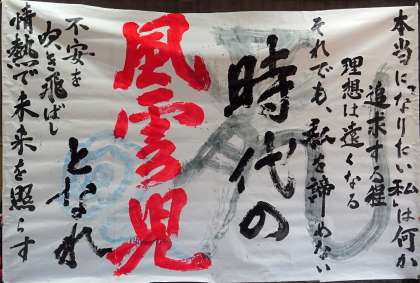 本当になりたい私は何か
追求する程
理想は遠くなる
それでも、私を諦めない
時代の
風雲児
となれ
不安を
吹き飛ばし
情熱で未来を照らす